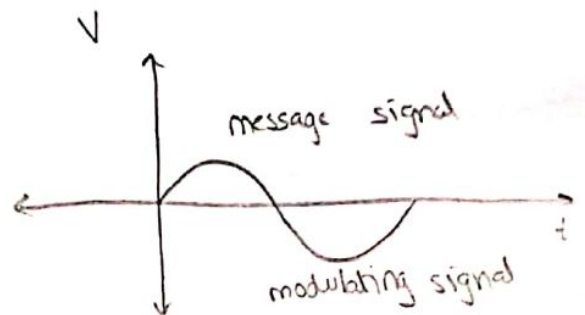 V
message signal
t
modulating signal